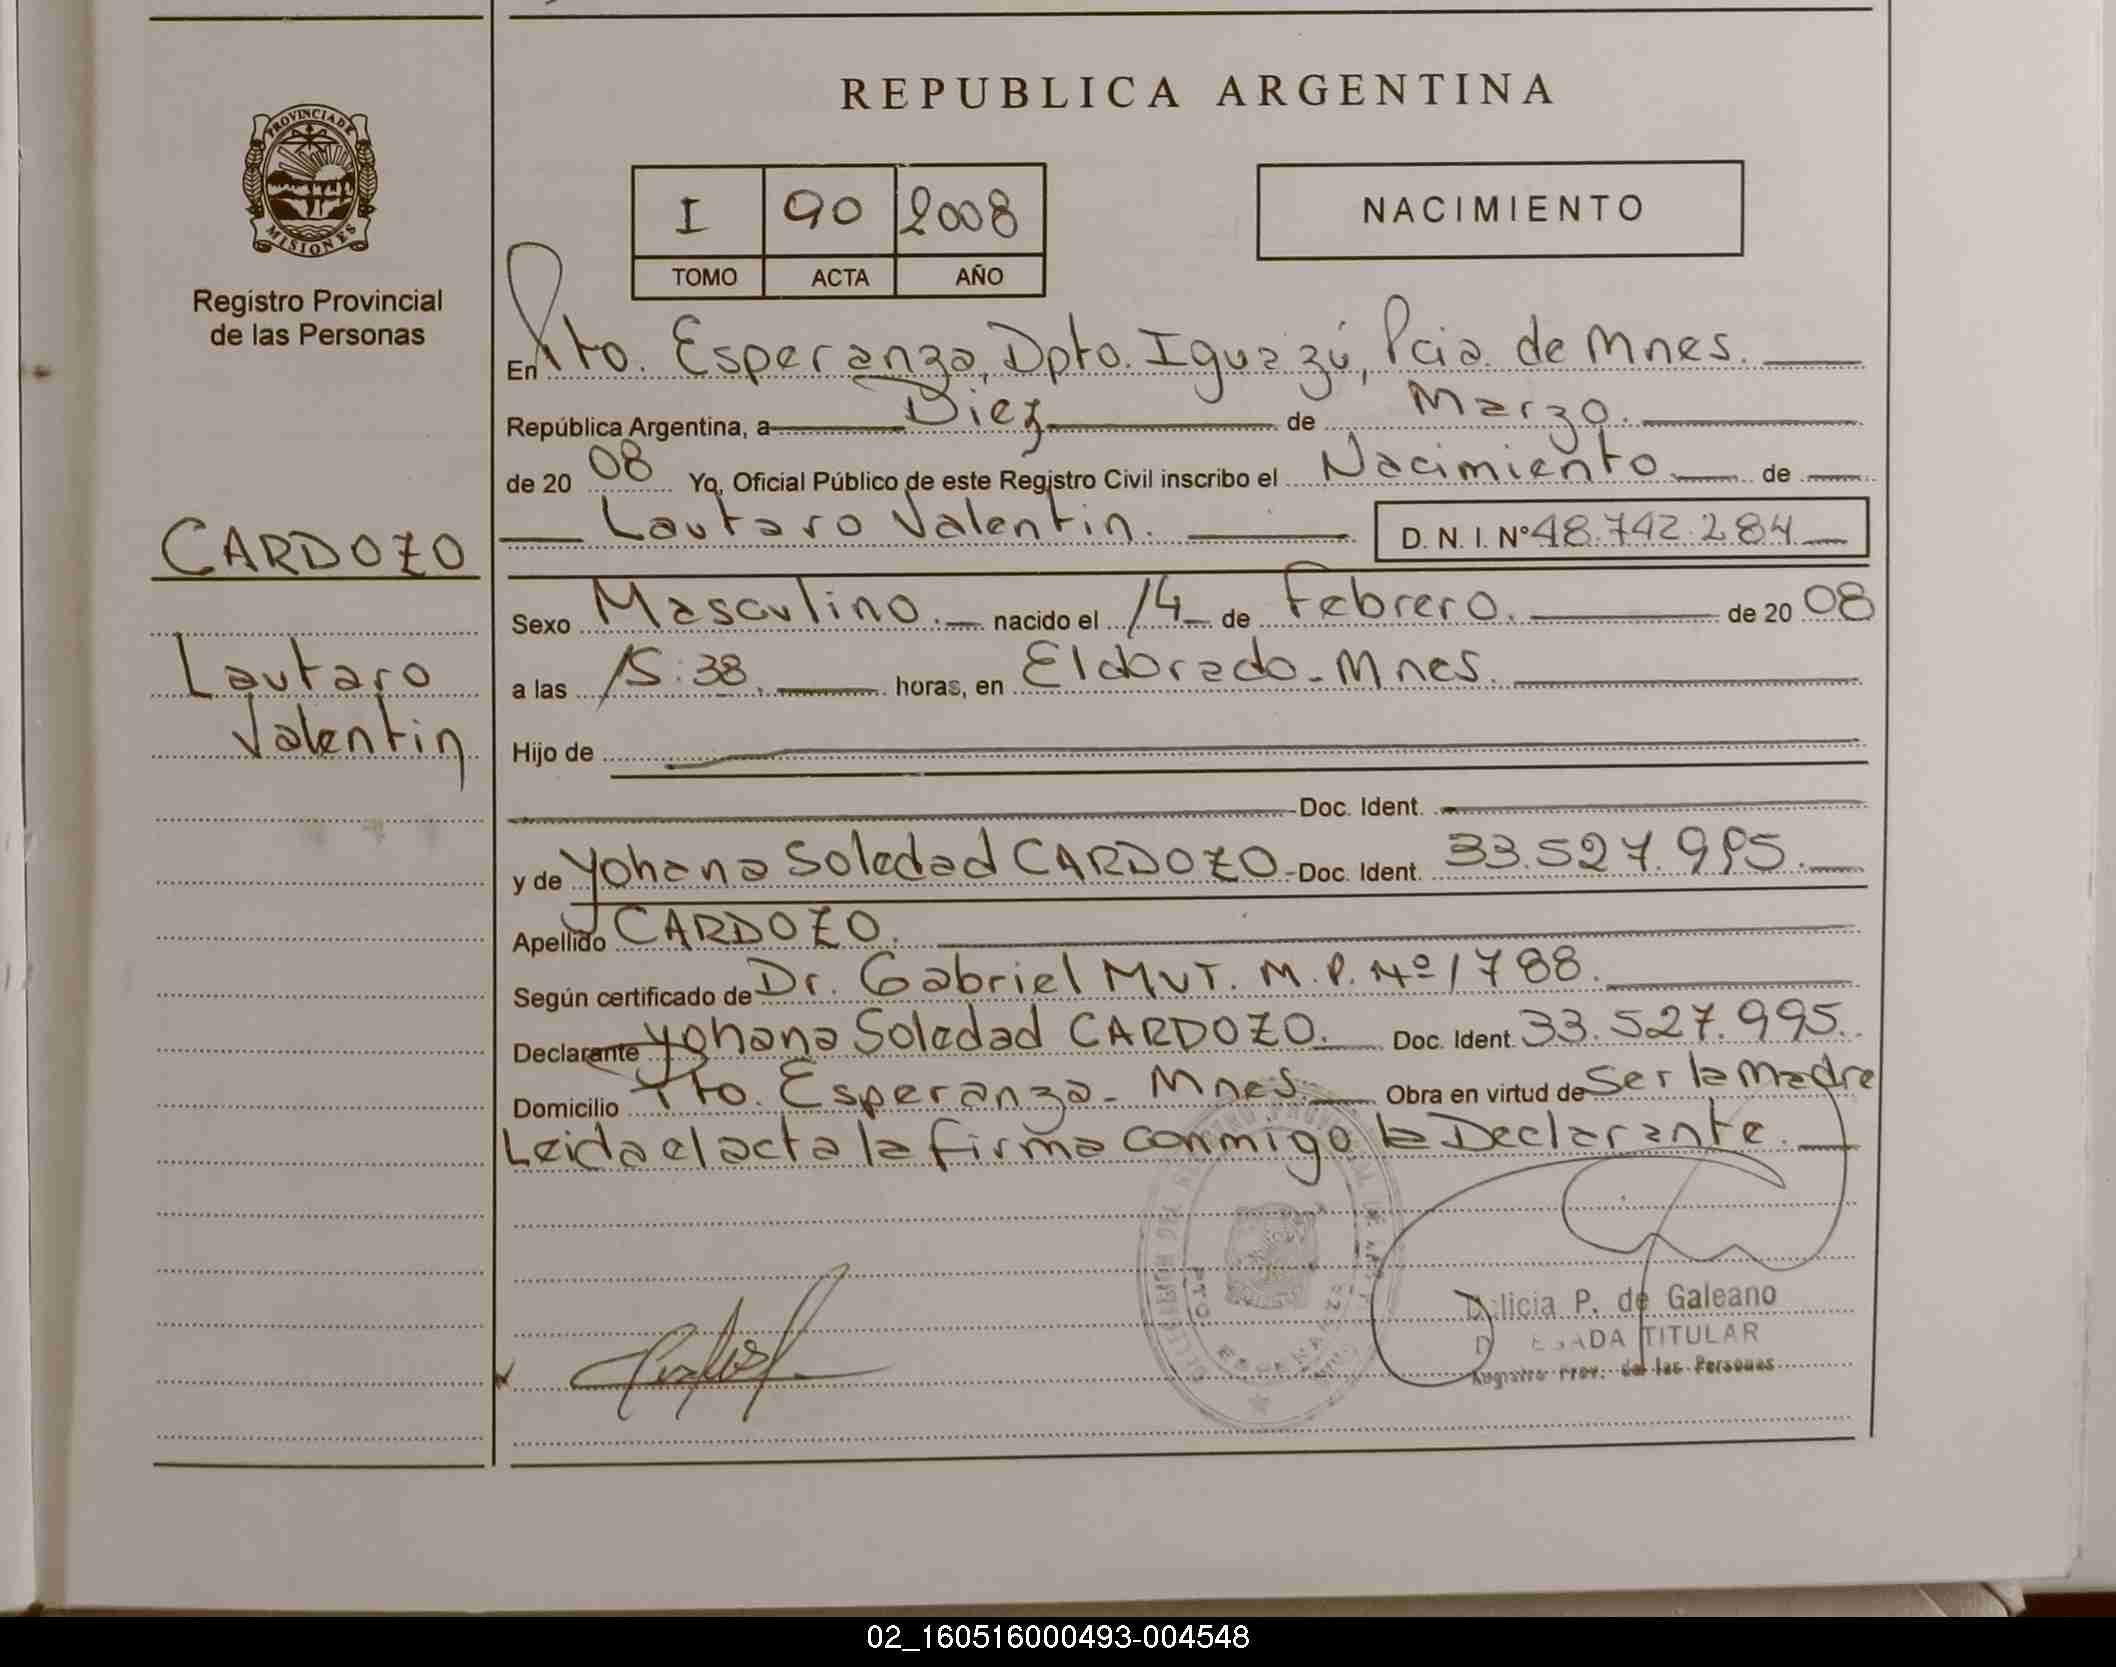 REPUBLICA ARGENTINA
PROVINCIA DE
MISIONES
Registro Provincial
de las Personas
I 90 2008
TOMO ACTA AÑO
NACIMIENTO
En Pto. Esperanza, Dpto. Iguazú, Pcia. de Mnes.
República Argentina, a Diez de Marzo.
de 20 08 Yo, Oficial Público de este Registro Civil inscribo el Nacimiento de
Lautaro Valentin. D. N. I. N° 48.742.284
CARDOZO
Lautaro
Valentin
Sexo Masculino. nacido el 14 de Febrero. de 20 08
a las 15:38. horas, en Eldorado - Mnes.
Hijo de
Doc. Ident.
y de Yohana Soledad CARDOZO - Doc. Ident. 33.527.995.
Apellido CARDOZO.
Según certificado de Dr. Gabriel MUT. M.P. Nº 1788.
Declarante Yohana Soledad CARDOZO. Doc. Ident. 33.527.995.
Domicilio Pto. Esperanza - Mnes. Obra en virtud de Ser la Madre
Leida el acta la firma conmigo la Declarante.
PTO. ESPERANZA
licia P. de Galeano
TITULAR
Registro Prov. de las Personas
02_160516000493-004548